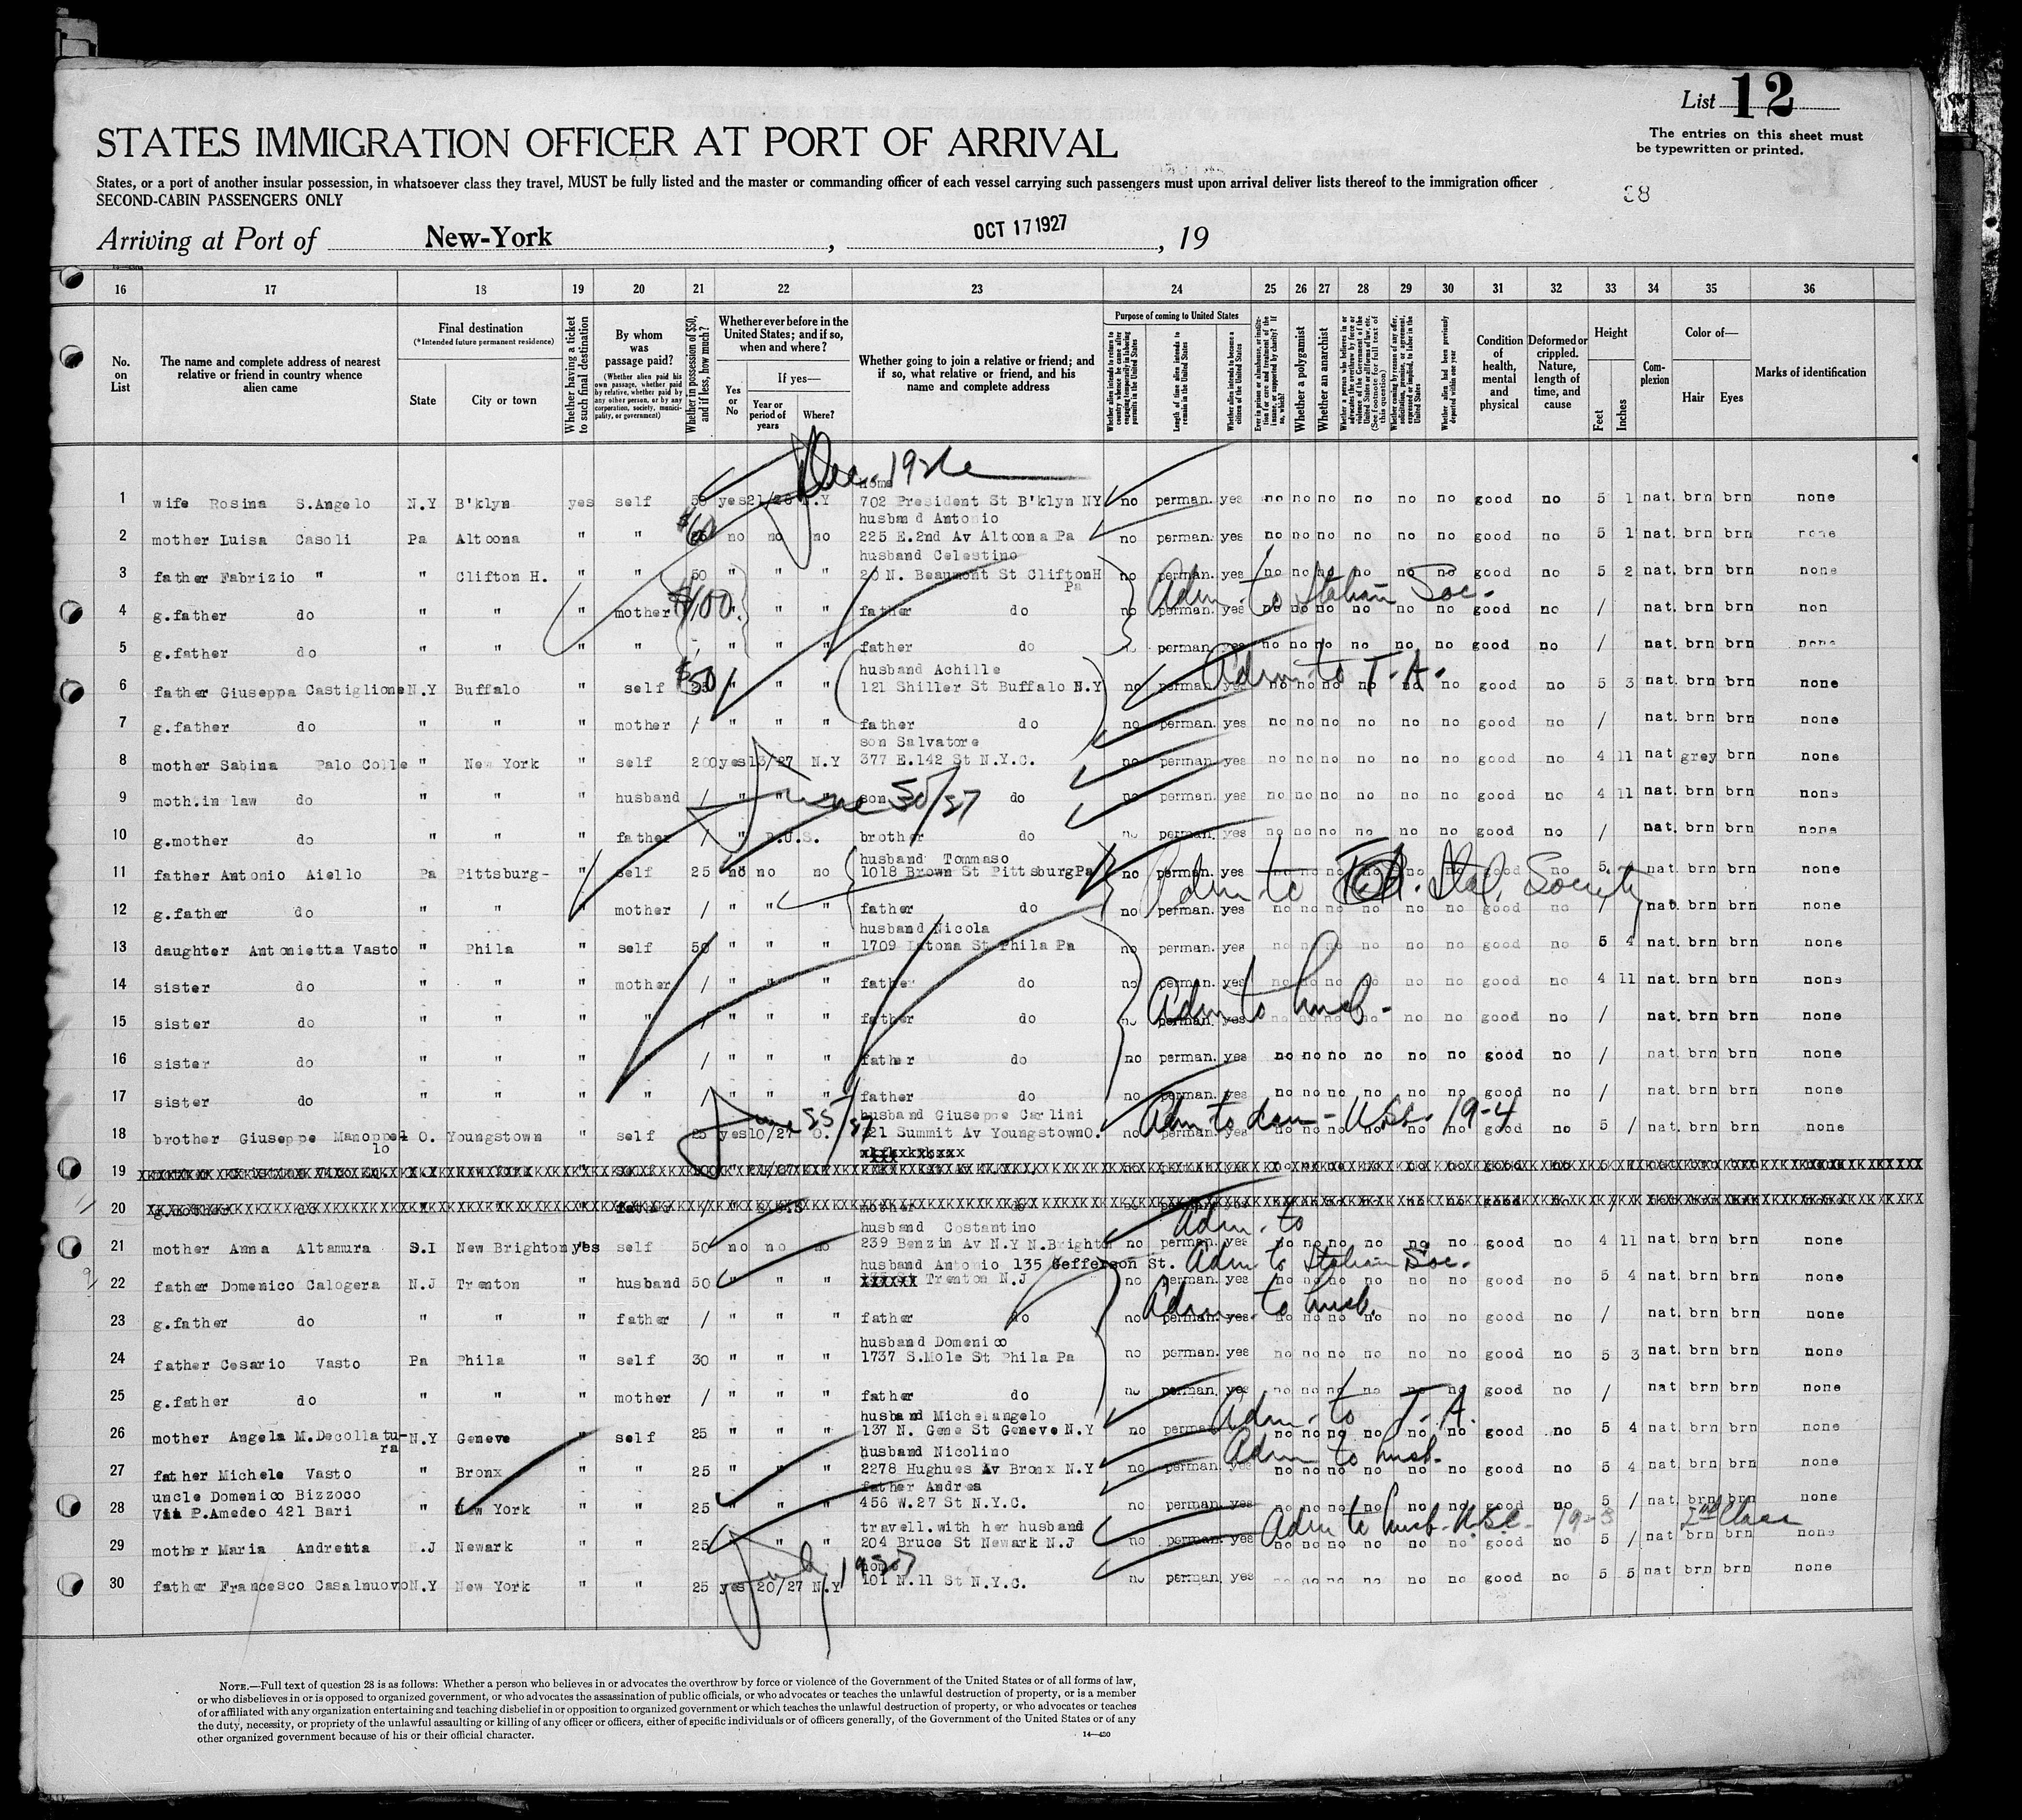 List 12
The entries on this sheet must
be typewritten or printed.
STATES IMMIGRATION OFFICER AT PORT OF ARRIVAL
States, or a port of another insular possession, in whatsoever class they travel, MUST be fully listed and the master or commanding officer of each vessel carrying such passengers must upon arrival deliver lists thereof to the immigration officer
SECOND-CABIN PASSENGERS ONLY
38
Arriving at Port of New-York, OCT 17 1927, 19
16 17 18 19 20 21 22 23 24 25 26 27 28 29 30 31 32 33 34 35 36
No. on List
The name and complete address of nearest relative or friend in country whence alien came
Final destination
(*Intended future permanent residence)
State
City or town
Whether having a ticket to such final destination
By whom was passage paid?
(Whether alien paid his own passage, whether paid by relative, whether paid by any other person, or by any corporation, society, municipality, or government)
Whether in possession of $50, and if less, how much?
Whether ever before in the United States; and if so, when and where?
Yes or No
If yes—
Year or period of years
Where?
Whether going to join a relative or friend; and if so, what relative or friend, and his name and complete address
Purpose of coming to United States
Whether alien intends to return to country whence he came after engaging temporarily in laboring pursuits in the United States
Length of time alien intends to remain in the United States
Whether alien intends to become a citizen of the United States
Whether a polygamist
Whether an anarchist
Condition of health, mental and physical
Deformed or crippled. Nature, length of time, and cause
Height
Feet
Inches
Complexion
Color of—
Hair
Eyes
Marks of identification
home
1 wife Rosina S.Angelo N.Y B'klyn yes self 50 yes N.Y 702 President St B'klyn NY no perman. yes no no no no no no good no 5 1 nat. brn brn none
husband Antonio
2 mother Luisa Casoli Pa Altoona " " $60 no no no 225 E.2nd Av Altoona Pa no perman. yes no no no no no no good no 5 1 nat. brn brn none
husband Celestino
3 father Fabrizio " " Clifton H. " " 50 " " " 20 N. Beaumont St CliftonH no perman. yes no no no no no no good no 5 2 nat. brn brn none
Pa
Adm. to Italian Soc.
4 g.father do " " " mother $100. " " " father do no perman. yes no no no no no no good no / nat. brn brn non
5 g.father do " " " " " " " father do perman. yes no no no no no no good no / nat. brn brn none
husband Achille
6 father Giuseppa Castiglione N.Y Buffalo " self $50 " " " 121 Shiller St Buffalo N.Y no perman. yes no no no no no no good no 5 3 nat. brn brn none
Adm. to T. A.
7 g.father do " " " mother / " " " father do no perman. yes no no no no no no good no / nat. brn brn none
son Salvatore
8 mother Sabina Palo Colle " New York " self 200 yes 13/27 N.Y 377 E.142 St N.Y.C. no perman. yes no no no no no no good no 4 11 nat grey brn none
June 30/27
9 moth.in law do " " " husband / " " " son do no perman. yes no no no no no no good no 4 11 nat. brn brn none
10 g.mother do " " " father / " U.S. brother do no perman. yes no no no no no no good no / nat. brn brn none
husband Tommaso
11 father Antonio Aiello Pa Pittsburg- " self 25 no no no 1018 Brown St Pittsburg Pa no perman. yes no no no no no no good no 5 nat. brn brn none
Adm. to Ital. Society
12 g.father do " " " mother / " " " father do no perman. yes no no no no no no good no / nat. brn brn none
husband Nicola
13 daughter Antonietta Vasto " Phila " self 50 " " " 1709 Latona St Phila Pa no perman. yes no no no no no no good no 5 4 nat. brn brn none
14 sister do " " " mother / " " " father do no perman. yes no no no no no no good no 4 11 nat. brn brn none
Adm to husb.
15 sister do " " " " / " " " father do no perman. yes no no no no no no good no / nat. brn brn none
16 sister do " " " " / " " " father do no perman. yes no no no no no no good no / nat. brn brn none
17 sister do " " " " / " " " father do no perman. yes no no no no no no good no / nat. brn brn none
husband Giuseppe Carlini
18 brother Giuseppe Manoppel O. Youngstown " self 25 yes 10/27 O. 221 Summit Av Youngstown O. no perman. yes no no no no no no good no 5 / nat. brn brn none
lo
19
20
husband Costantino
21 mother Anna Altamura S.I New Brighton yes self 50 no no no 239 Benzin Av N.Y N.Bright no perman. yes no no no no no no good no 4 11 nat. brn brn none
Adm. to
husband Antonio 135 Gefferson St. Adm. to Italian Soc.
22 father Domenico Calogera N.J Trenton " husband 50 " " " XXXXXX Trenton N.J no perman. yes no no no no no no good no 5 4 nat. brn brn none
Adm. to husb.
23 g.father do " " " father / " " " father do no perman. yes no no no no no no good no / nat. brn brn none
husband Domenico
24 father Cesario Vasto Pa Phila " self 30 " " " 1737 S.Mole St Phila Pa no perman. yes no no no no no no good no 5 3 nat. brn brn none
25 g.father do " " " mother / " " " father do no perman. yes no no no no no no good no / nat brn brn none
husband Michelangelo
Adm. to T. A.
26 mother Angela M.Decollatu- N.Y Geneve " self 25 " " " 137 N. Gene St Geneve N.Y no perman. yes no no no no no no good no 5 4 nat. brn brn none
ra
husband Nicolino
Adm to husb.
27 father Michele Vasto " Bronx " " 25 " " " 2278 Hughues Av Bronx N.Y no perman. yes no no no no no no good no 5 4 nat. brn brn none
uncle Domenico Bizzoco father Andrea
28 Via P.Amedeo 421 Bari " New York " " 25 " " " 456 W.27 St N.Y.C. no perman. yes no no no no no no good no 5 / nat. brn brn none
travell.with her husband
2nd Class
29 mother Maria Andretta N.J Newark " " 25 " " " 204 Bruce St Newark N.J no perman. yes no no no no no no good no 5 / nat brn brn none
home
July 1927
30 father Francesco Casalnuovo N.Y New York " " 25 yes 20/27 N.Y 101 N.11 St N.Y.C. no perman. yes no no no no no no good no 5 5 nat brn brn none
NOTE.—Full text of question 28 is as follows: Whether a person who believes in or advocates the overthrow by force or violence of the Government of the United States or of all forms of law,
or who disbelieves in or is opposed to organized government, or who advocates the assassination of public officials, or who advocates or teaches the unlawful destruction of property, or is a member
of or affiliated with any organization entertaining and teaching disbelief in or opposition to organized government or which teaches the unlawful destruction of property, or who advocates or teaches
the duty, necessity, or propriety of the unlawful assaulting or killing of any officer or officers, either of specific individuals or of officers generally, of the Government of the United States or of any
other organized government because of his or their official character.
14—430